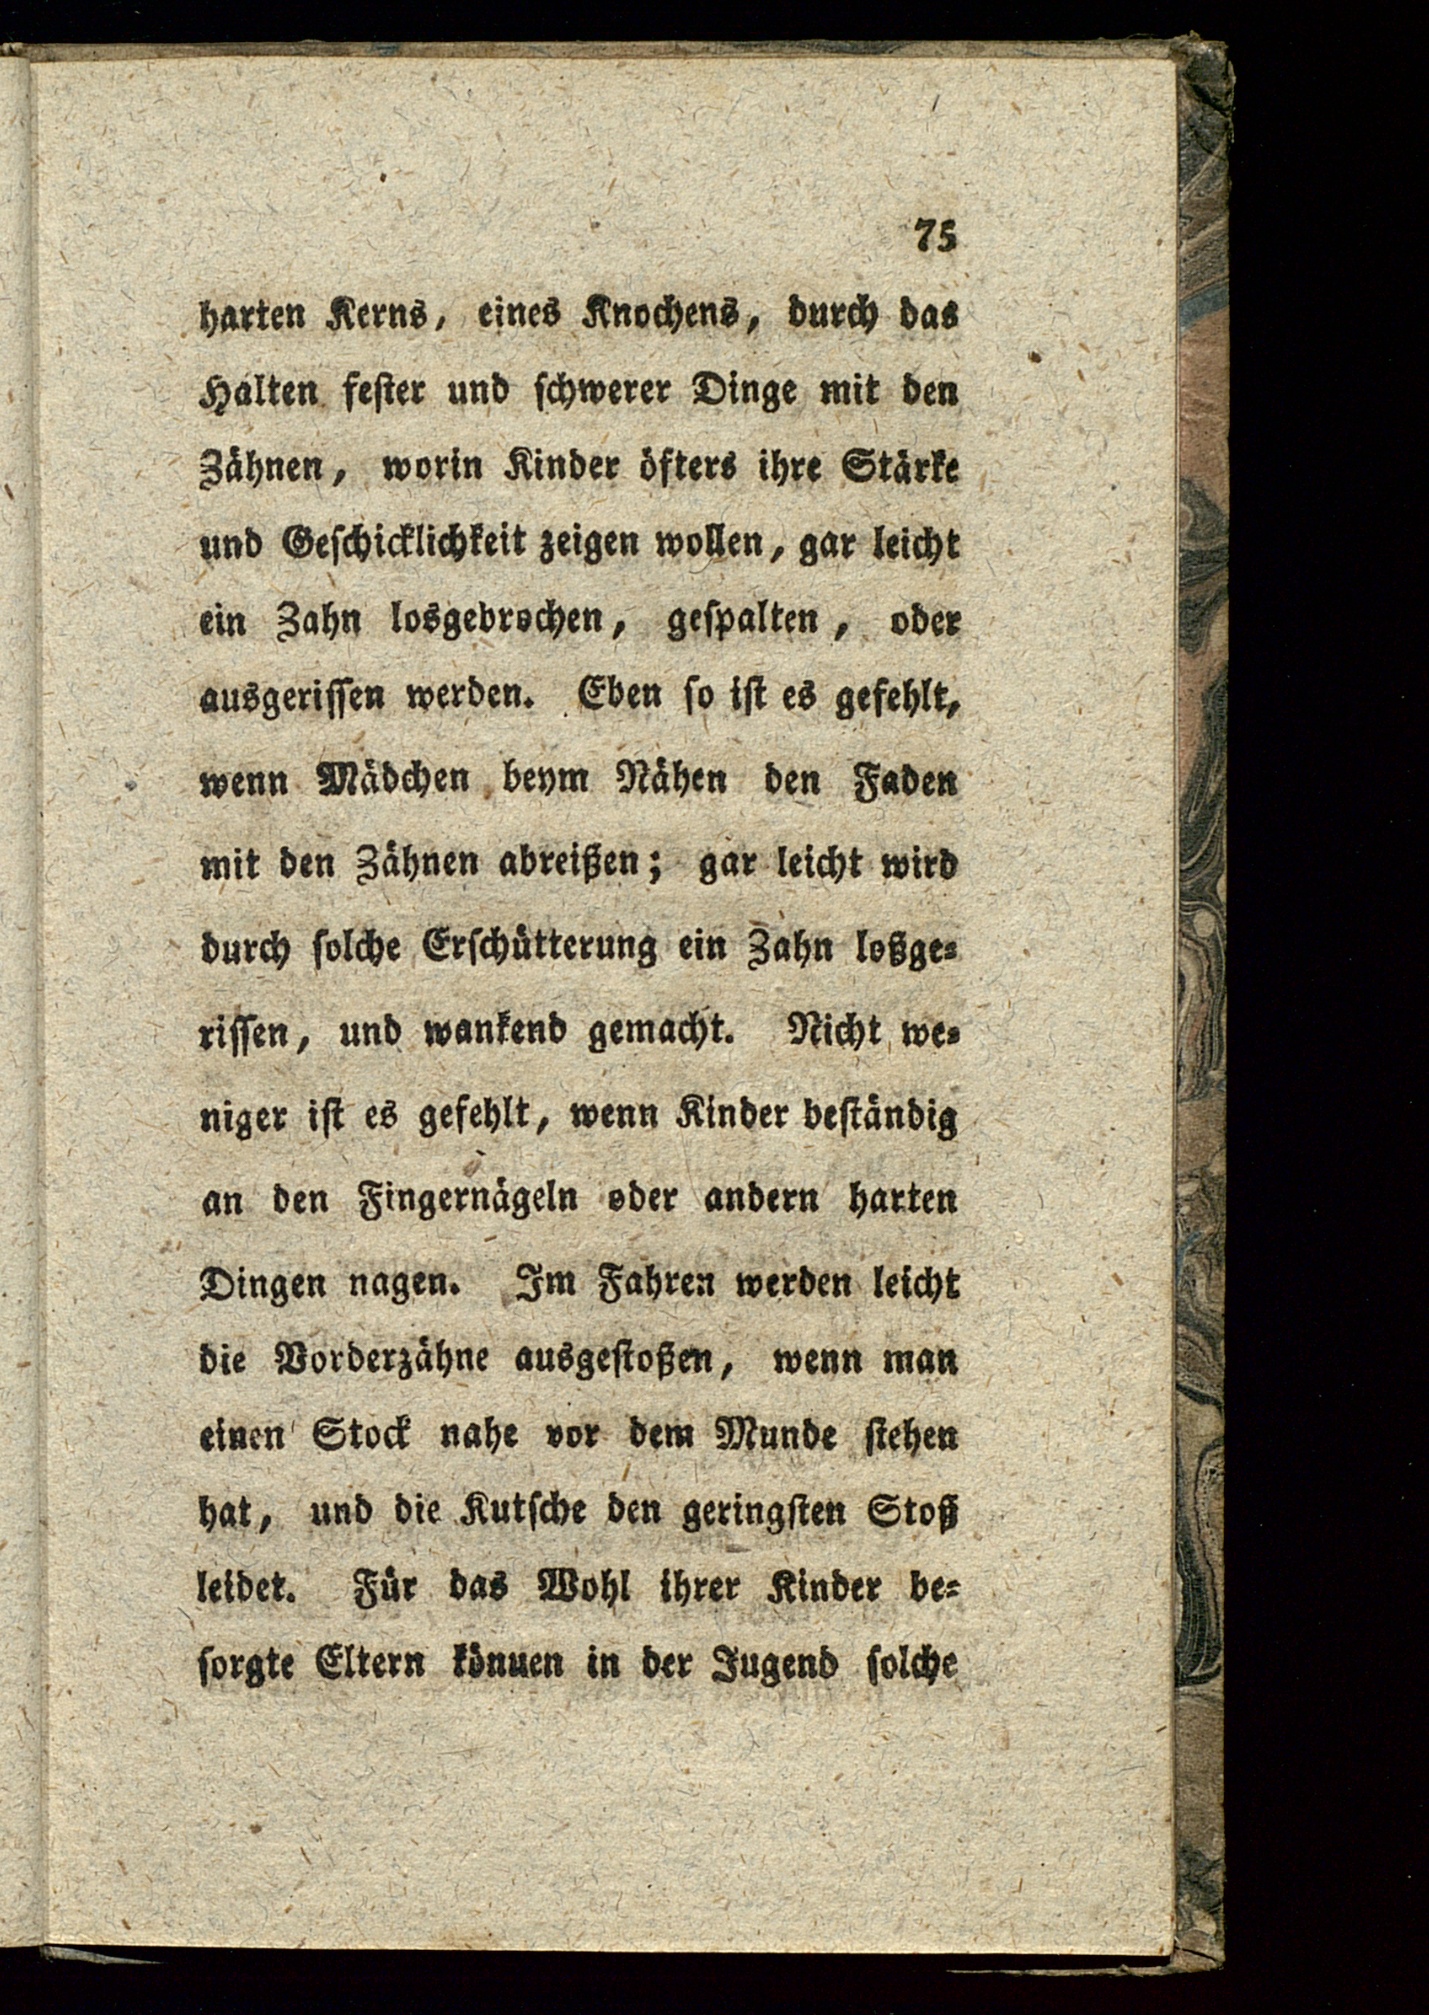 75
harten Kerns, eines Knochens, durch das
Halten fester und schwerer Dinge mit den
Zähnen, worin Kinder öfters ihre Stärke
und Geschicklichkeit zeigen wollen, gar leicht
ein Zahn losgebrochen, gespalten, oder
ausgerissen werden. Eben so ist es gefehlt,
wenn Mädchen beym Nähen den Faden
mit den Zähnen abreißen; gar leicht wird
durch solche Erschütterung ein Zahn loßge-
rissen, und wankend gemacht. Nicht we-
niger ist es gefehlt, wenn Kinder beständig
an den Fingernägeln oder andern harten
Dingen nagen. Im Fahren werden leicht
die Vorderzähne ausgestoßen, wenn man
einen Stock nahe vor dem Munde stehen
hat, und die Kutsche den geringsten Stoß
leidet. Für das Wohl ihrer Kinder be-
sorgte Eltern könuen in der Jugend solche